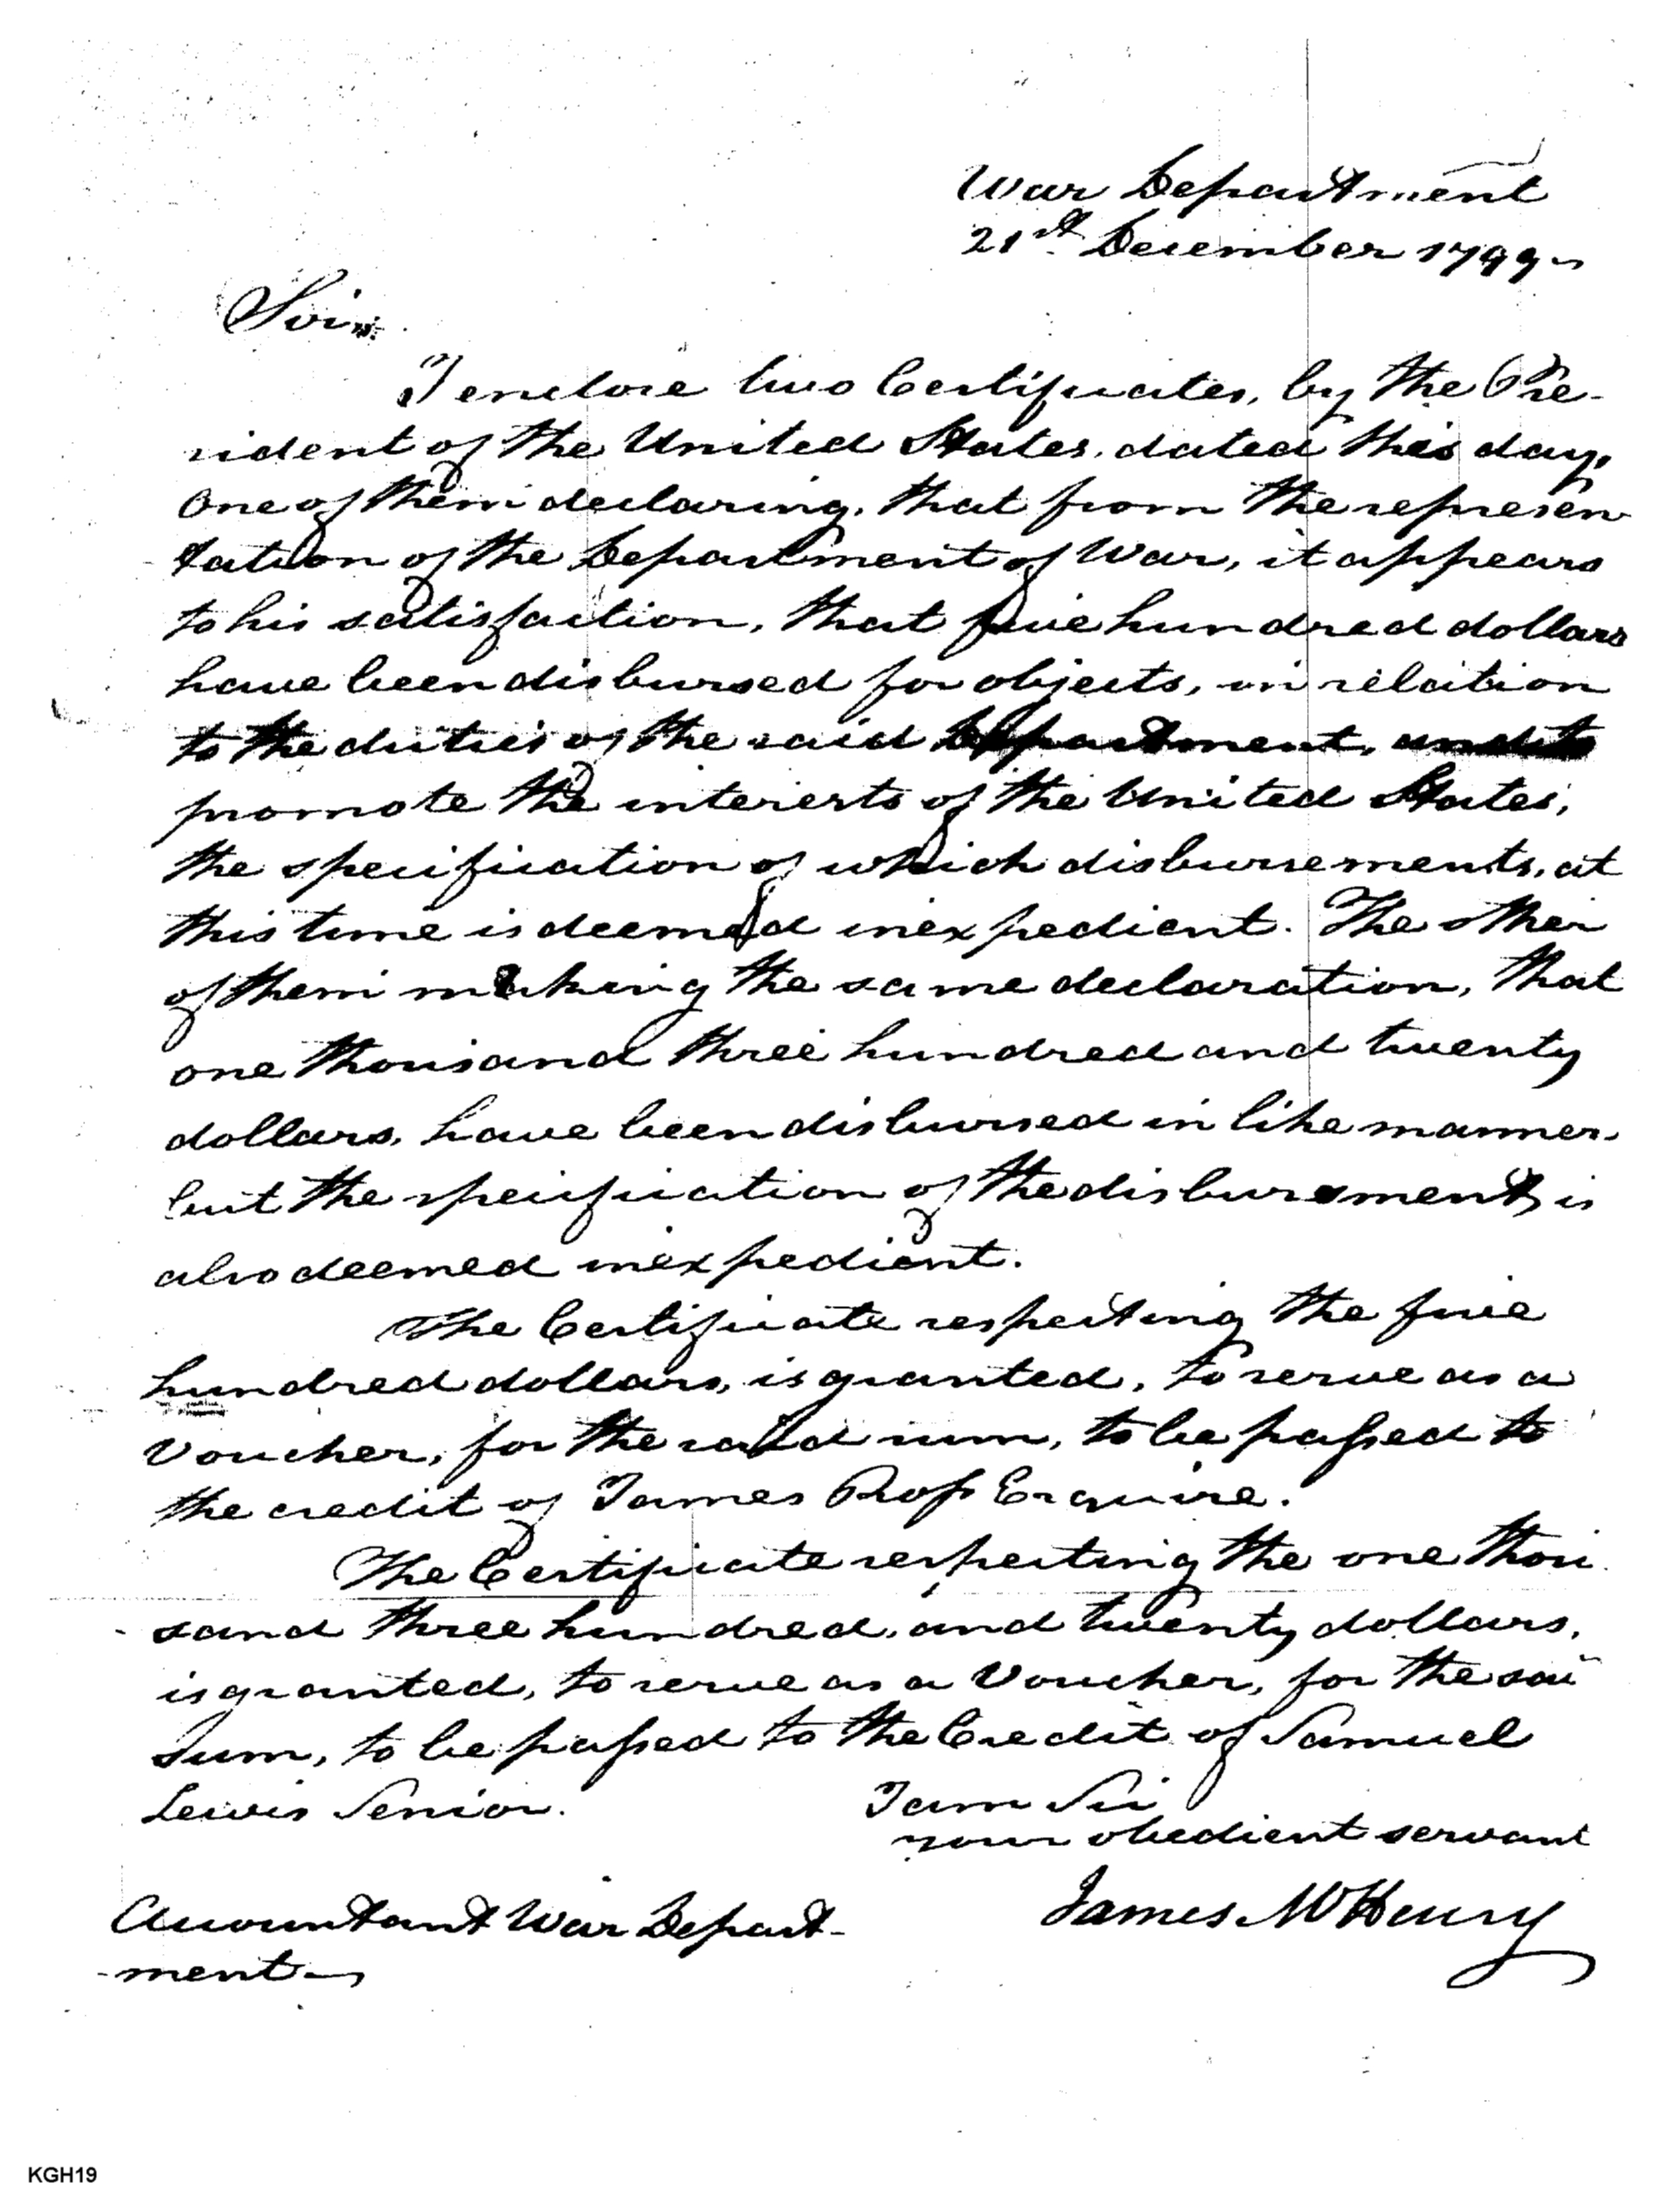 War Department
21st December 1799
Sir
I enclose two Certificates, by the Pre-
sident of the United States, dated this day,
One of them declaring, that from the represen
tation of the Department of War, it appears
to his satisfaction, that five hundred dollars
have been disbursed for objects, in relation
to the duties of the said Department, and to
promote the interests of the United States,
the specification of which disbursements, at
this time is deemed inexpedient. The other
of them making the same declaration, that
one thousand three hundred and twenty
dollars, have been disbursed in like manner,
but the specification of the disbursement, is
also deemed inexpedient.
The Certificate respecting the five
hundred dollars, is granted, to serve as a
Voucher, for the said sum, to be passed to
the credit of James Ross Esquire.
The Certificate respecting the one thou
sand three hundred, and twenty dollars,
is granted, to serve as a Voucher, for the sai
Sum, to be passed to the Credit of Samuel
Lewis Senior.
I am Sir
your obedient servant
James McHenry
Accountant War Depart-
-ment
KGH19